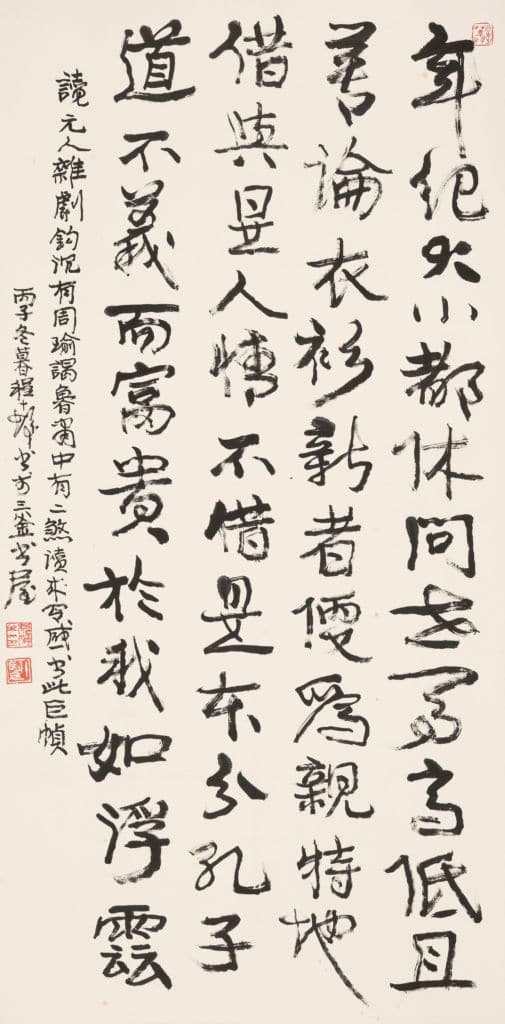 年紀大小都休問高低且
論衣衫新者便爲親特地
借與是人情不借是本分孔子
道不義而富貴於我如浮雲
讀元人雜劇鈎沉有周瑜謁魯肅中有二煞讀感書此巨幀
丙子冬暮程十髮書於三釜書屋